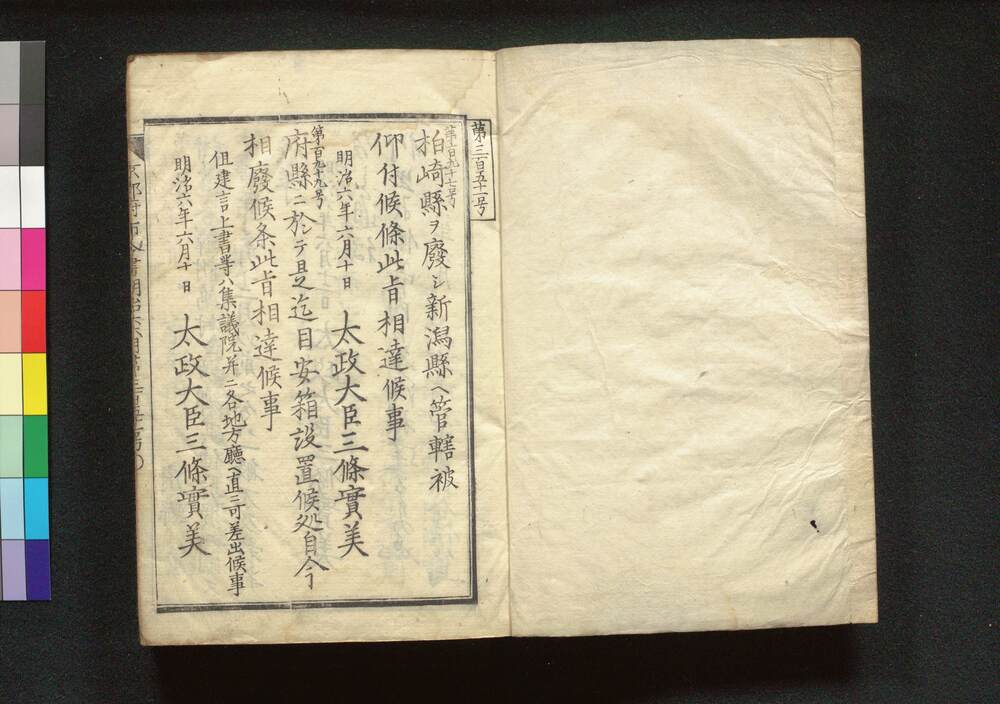 第三百五十一号
第百九十七号
柏崎縣ヲ廢シ新潟縣ヘ管轄被
仰付候條此旨相達候事
明治六年六月十日 太政大臣三條實美
第百九十九号
府縣ニ於テ是迄目安箱設置候処自今
相廢候条此旨相達候事
但建言上書等ハ集議院并ニ各地方廳ヘ直ニ可差出候事
明治六年六月十日 太政大臣三條實美